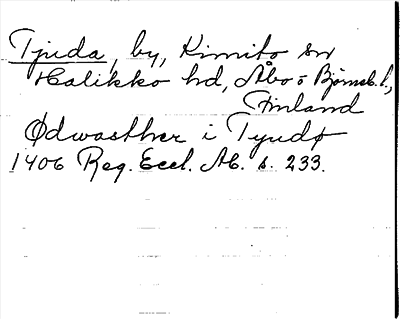 Tjuda, by, Kimito sn
Halikko hd, Åbo o Björneb. l.,
Finland
Ødwasther i Tyudø
1406 Reg. Eccl. Ab. s. 233.